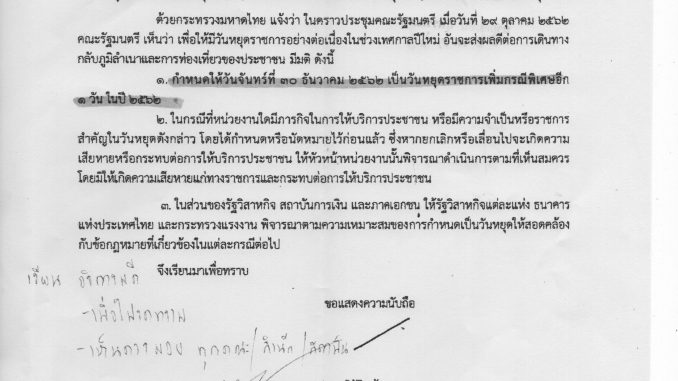 ด้วยกระทรวงมหาดไทย แจ้งว่า ในคราวประชุมคณะรัฐมนตรี เมื่อวันที่ ๒๙ ตุลาคม ๒๕๖๒
คณะรัฐมนตรี เห็นว่า เพื่อให้มีวันหยุดราชการอย่างต่อเนื่องในช่วงเทศกาลปีใหม่ อันจะส่งผลดีต่อการเดินทาง
กลับภูมิลำเนาและการท่องเที่ยวของประชาชน มีมติ ดังนี้
๑. กำหนดให้วันจันทร์ที่ ๓๐ ธันวาคม ๒๕๖๒ เป็นวันหยุดราชการเพิ่มกรณีพิเศษอีก
๑ วัน ในปี ๒๕๖๒
๒. ในกรณีที่หน่วยงานใดมีภารกิจในการให้บริการประชาชน หรือมีความจำเป็นหรือราชการ
สำคัญในวันหยุดดังกล่าว โดยได้กำหนดหรือนัดหมายไว้ก่อนแล้ว ซึ่งหากยกเลิกหรือเลื่อนไปจะเกิดความ
เสียหายหรือกระทบต่อการให้บริการประชาชน ให้หัวหน้าหน่วยงานนั้นพิจารณาดำเนินการตามที่เห็นสมควร
โดยมิให้เกิดความเสียหายแก่ทางราชการและกระทบต่อการให้บริการประชาชน
๓. ในส่วนของรัฐวิสาหกิจ สถาบันการเงิน และภาคเอกชน ให้รัฐวิสาหกิจแต่ละแห่ง ธนาคาร
แห่งประเทศไทย และกระทรวงแรงงาน พิจารณาตามความเหมาะสมของการกำหนดเป็นวันหยุดให้สอดคล้อง
กับข้อกฎหมายที่เกี่ยวข้องในแต่ละกรณีต่อไป
จึงเรียนมาเพื่อทราบ
เรียน อธิการบดี
ขอแสดงความนับถือ
-เพื่อโปรดทราบ
-เห็นควรมอบ ทุกคณะ/สำนัก/สถาบัน